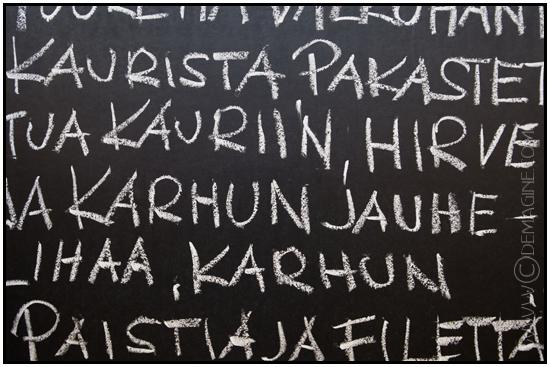 TUORETTA VALKOHÄNT
KAURISTA PAKASTET
TUA KAURIIN, HIRVE
JA KARHUN JAUHE
LIHAA, KARHUN
PAISTIA JA FILETTÄ
WWW.©DEMAGINE.COM